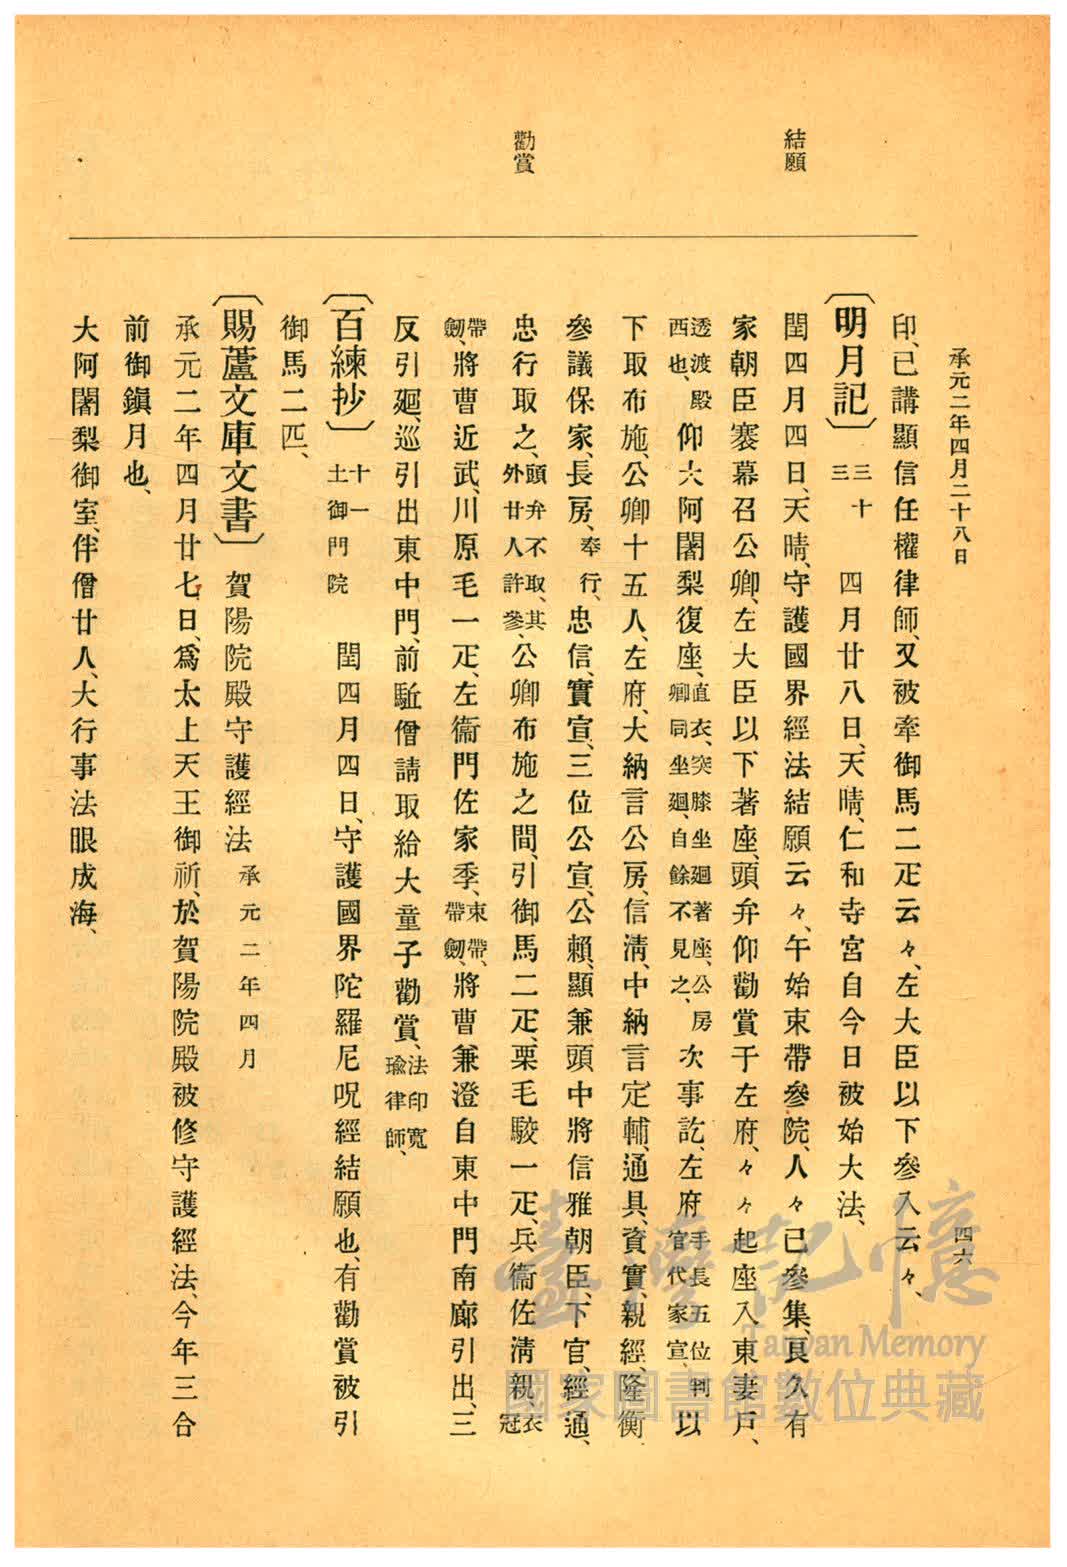 承元二年四月二十八日
四六
結願
勸賞
印、已講顯信任權律師、又被牽御馬二疋云々、左大臣以下參入云々、
〔明月記〕三十三 四月廿八日、天晴、仁和寺宮自今日被始大法、
閏四月四日、天晴、守護國界經法結願云々、午始束帶參院、人々已參集、良久有
家朝臣褰幕召公卿、左大臣以下著座、頭弁仰勸賞于左府、々々起座入東妻戶、
透渡殿西也、仰大阿闍梨復座、直衣、突膝坐廻著座、公房卿同坐廻、自餘不見之、次事訖、左府手長五位判官代家宣、以
下取布施、公卿十五人、左府、大納言公房、信淸、中納言定輔、通具、資實、親經、隆衡
參議保家、長房、奉行、忠信、實宣、三位公宣、公賴、顯兼頭中將信雅朝臣、下官、經通、
忠行取之、頭弁不取、其外廿人許參、公卿布施之間、引御馬二疋、栗毛駮一疋、兵衞佐淸親衣冠
帶劔、將曹近武、川原毛一疋、左衞門佐家季、束帶、帶劔、將曹兼澄自東中門南廊引出、三
反引廻、巡引出東中門、前駈僧請取給大童子勸賞、法印寬瑜律師、
〔百練抄〕十一土御門院 閏四月四日、守護國界陀羅尼呪經結願也、有勸賞被引
御馬二匹、
〔賜蘆文庫文書〕賀陽院殿守護經法承元二年四月
承元二年四月廿七日、爲太上天王御祈、於賀陽院殿被修守護經法、今年三合
前御鎭月也、
大阿闍梨御室、伴僧廿人、大行事法眼成海、
臺灣記憶
Taiwan Memory
國家圖書館數位典藏